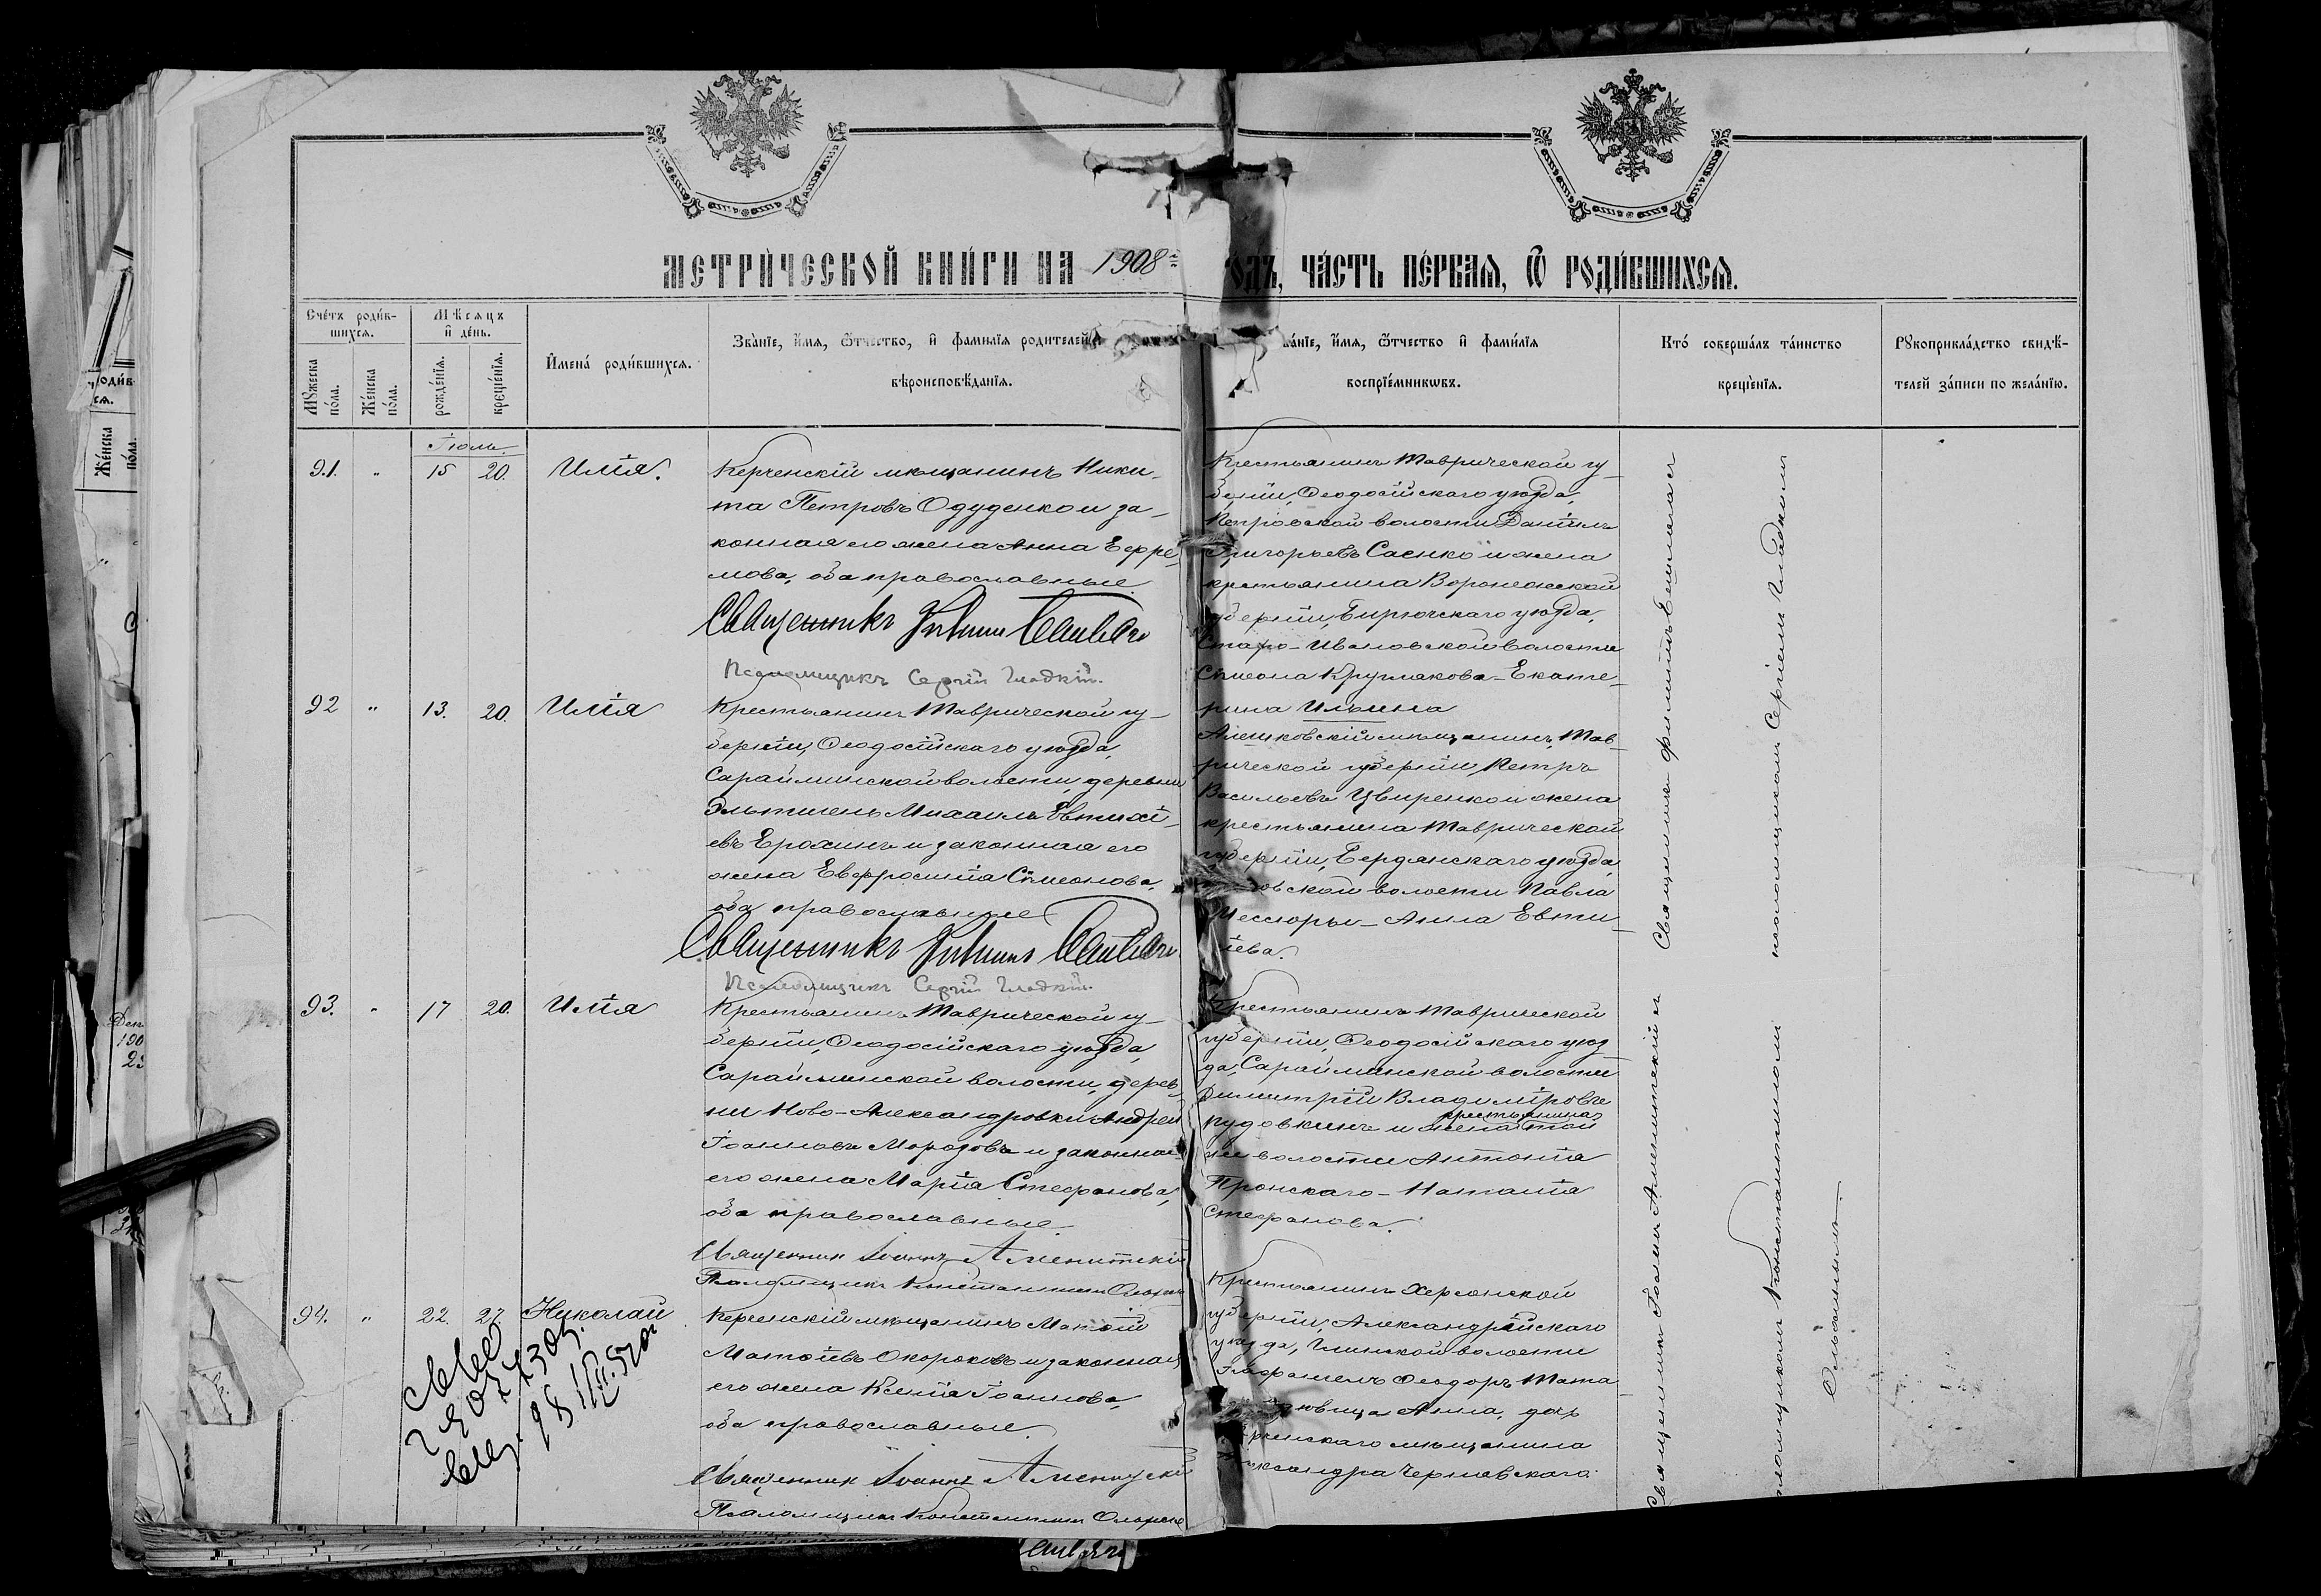 МЕТРИЧЕСКОЙ КНИГИ НА 1908 ГОДЪ, ЧАСТЬ ПЕРВАЯ, Ѿ РОДИВШИХСЯ.
Счетъ родив-
шихся.
Мужеска
пола.
Женска
пола.
Мѣсяцъ
и день.
рожденія.
крещенія.
Имена родившихся.
Званіе, имя, ѿтчество, и фамилія родителей
вѣроисповѣданія.
Званіе, имя, ѿтчество и фамилія
воспріемниковъ.
Кто совершалъ таинство
крещенія.
Рукоприкладство свидѣ-
телей записи по желанію.
Іюль.
91. " 15 20. Илія.
Керченскій мѣщанинъ Ники-
та Петровъ Одуденко и за-
конная его жена Анна Ефре-
мова, оба православные
Священникъ
Псаломщикъ Сергій Гладкій.
Крестьянинъ Таврической гу-
берніи, Ѳеодосійскаго уѣзда,
Петровской волости Даніилъ
Григорьевъ Саенко и жена
крестьянина Воронежской
губерніи, Бирючскаго уѣзда,
Старо-Ивановской волости
Сѵмеона Круглякова - Екате-
рина Ильина
92 " 13. 20. Илія
Крестьянинъ Таврической гу-
берніи, Ѳеодосійскаго уѣзда,
Сарайминской волости, деревни
Эльтигень Михаилъ Евтихі-
евъ Ерохинъ и законная его
жена Евфросинія Сѵмеонова,
оба православные
Священникъ
Псаломщикъ Сергій Гладкій.
Алешковскій мѣщанинъ, Тав-
рической губерніи, Петръ
Васильевъ Цвиренко и жена
крестьянина Таврической
губерніи, Бердянскаго уѣзда,
волости Павла
- Анна Евти-
93. " 17 20. Илія
Крестьянинъ Таврической гу-
берніи, Ѳеодосійскаго уѣзда,
Сарайминской волости, дерев-
ни Ново-Александровки Андрей
Іоанновъ Морозовъ и законная
его жена Марія Стефанова,
оба православные
Священникъ Іоаннъ
Псаломщикъ Константинъ
Крестьянинъ Таврической
губерніи, Ѳеодосійскаго уѣз-
да, Сарайминской волости
Димитрій Владиміровъ
Пудовкинъ и жена крестьянина той
же волости Антонія
Пронскаго - Наталія
Стефанова.
94. " 22. 27. Николай
Керченскій мѣщанинъ Матѳій
Матѳіевъ Окороковъ и законная
его жена Ксенія Іоаннова,
оба православные.
Священникъ Іоаннъ
Псаломщикъ Константинъ
Крестьянинъ Херсонской
губерніи, Александрійскаго
уѣзда, Глинской волости
Ѳеодоръ
дѣвица Анна, дочь
Керченскаго мѣщанина
Александра Чернявскаго.
Священникъ
псаломщикомъ Сергіемъ Гладкимъ
Священникъ Іоаннъ
псаломщикомъ Константиномъ